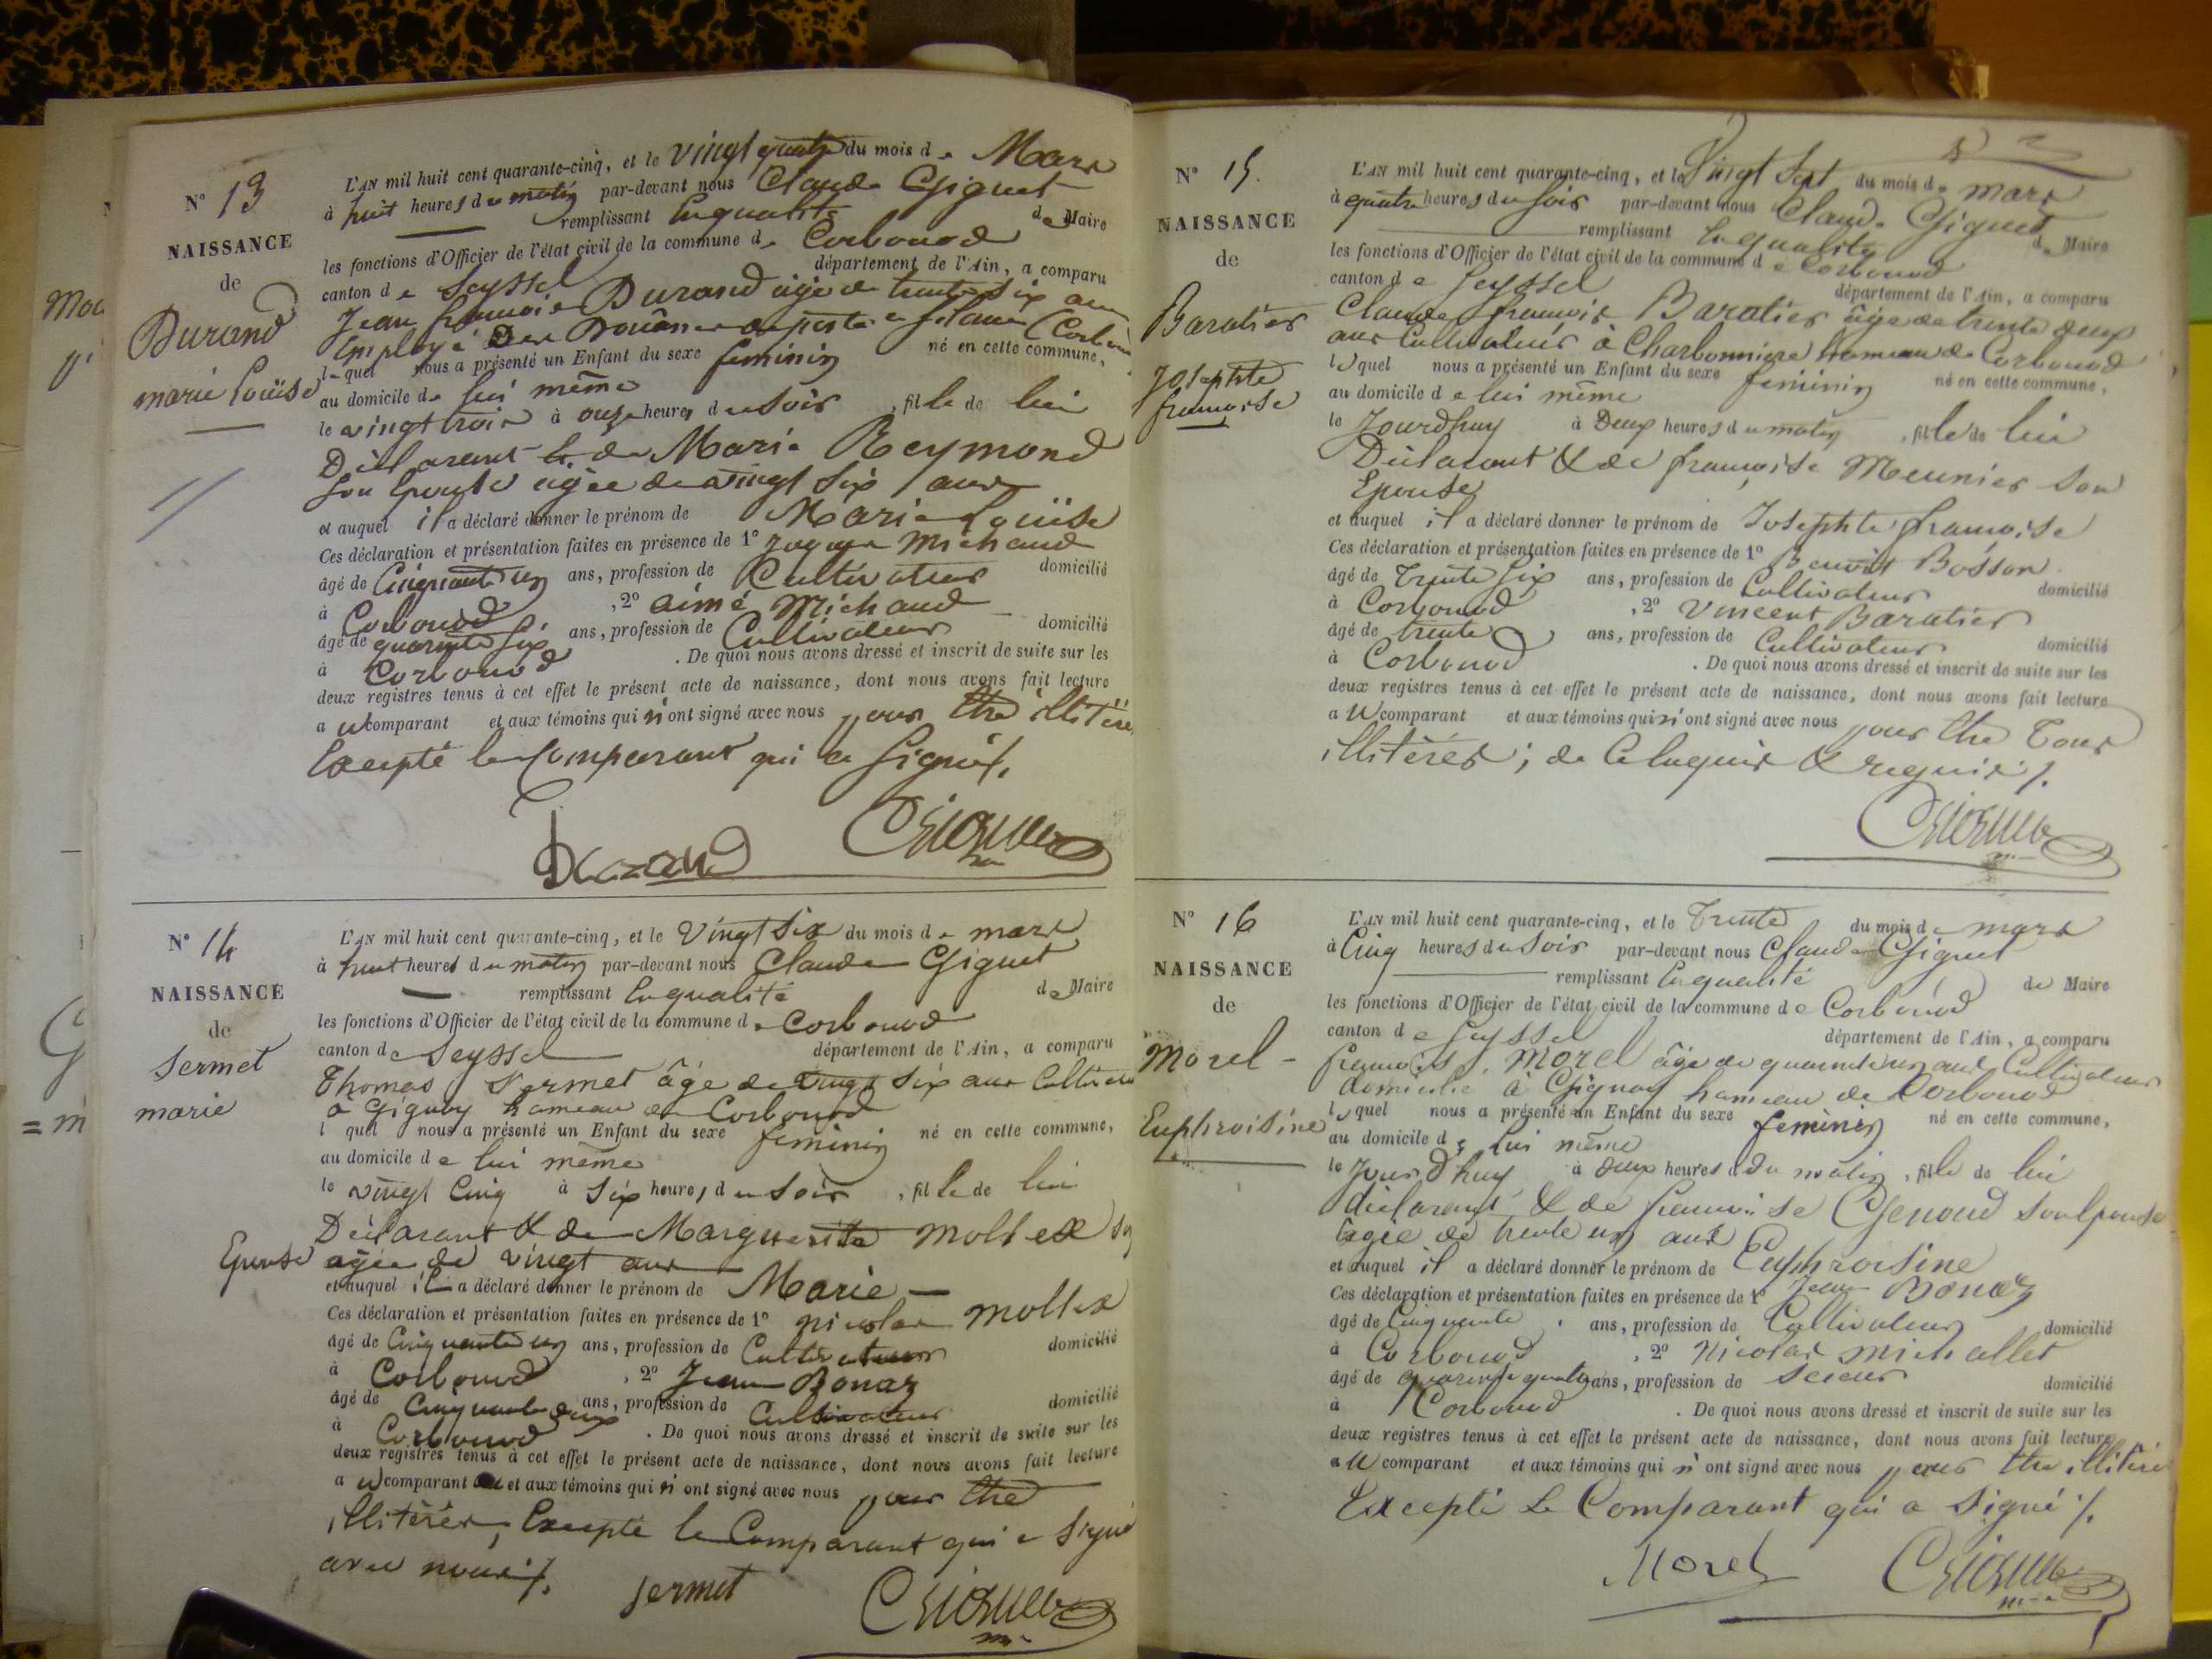 N° 13
NAISSANCE
de
Durand
marie Louise
L'AN mil huit cent quarante-cinq, et le vingt quatre du mois de Mars
à huit heures du matin par-devant nous Claude Giguet
remplissant en qualité de Maire
les fonctions d'Officier de l'état civil de la commune de Corbonod
canton de Seyssel département de l'Ain, a comparu
Jean françois Durand âgé de trente six ans
Employé Des Douanes
lequel nous a présenté un Enfant du sexe feminin né en cette commune,
au domicile de lui même
le vingt trois à onze heures du soir, fille de lui
Déclarant & de Marie Reymond
son Epouse agée de vingt six ans
et auquel il a déclaré donner le prénom de Marie Louise
Ces déclaration et présentation faites en présence de 1° Michaud
âgé de Cinquante un ans, profession de Cultivateur domicilié
à Corbonod, 2° aimé Michaud
âgé de quarante six ans, profession de Cultivateur domicilié
à Corbonod. De quoi nous avons dressé et inscrit de suite sur les
deux registres tenus à cet effet le présent acte de naissance, dont nous avons fait lecture
au comparant et aux témoins qui n'ont signé avec nous pour être illitérés
Excepté le Comparant qui a signé ./.
Durand Giguet
N° 14
NAISSANCE
de
Sermet
marie
L'AN mil huit cent quarante-cinq, et le Vingt six du mois de mars
à huit heures du matin par-devant nous Claude Giguet
remplissant en qualité de Maire
les fonctions d'Officier de l'état civil de la commune de Corbonod
canton de Seyssel département de l'Ain, a comparu
Thomas Sermet âgé de vingt six ans Cultivateur
à Gignay hameau de Corbonod
lequel nous a présenté un Enfant du sexe feminin né en cette commune,
au domicile de lui même
le vingt Cinq à six heures du soir, fille de lui
Déclarant & de Marguerite mollex son
Epouse agée de vingt ans
et auquel il a déclaré donner le prénom de Marie
Ces déclaration et présentation faites en présence de 1° nicolas mollex
âgé de Cinquante un ans, profession de Cultivateur domicilié
à Corbonod, 2° Jean Bonaz
âgé de Cinquante deux ans, profession de Cultivateur domicilié
à Corbonod. De quoi nous avons dressé et inscrit de suite sur les
deux registres tenus à cet effet le présent acte de naissance, dont nous avons fait lecture
au comparant et aux témoins qui n'ont signé avec nous pour être
illitérés, Excepté le Comparant qui a signé
avec nous ./.
Sermet Giguet
N° 15.
NAISSANCE
de
Baratier
Josephte
françoise
L'AN mil huit cent quarante-cinq, et le Vingt Sept du mois de mars
à quatre heures du soir par-devant nous Claude Giguet
remplissant en qualité de Maire
les fonctions d'Officier de l'état civil de la commune de Corbonod
canton de Seyssel département de l'Ain, a comparu
Claude françois Baratier âgé de trente deux
ans Cultivateur à Charbonniere hameau de Corbonod
lequel nous a présenté un Enfant du sexe feminin né en cette commune,
au domicile de lui même
le Jourdhuy à Deux heures du matin, fille de lui
Déclarant & de françoise Meunier son
Epouse
et auquel il a déclaré donner le prénom de Josephte françoise
Ces déclaration et présentation faites en présence de 1° Benoit Bosson
âgé de Trente six ans, profession de Cultivateur domicilié
à Corbonod, 2° Vincent Baratier
âgé de trente ans, profession de Cultivateur domicilié
à Corbonod. De quoi nous avons dressé et inscrit de suite sur les
deux registres tenus à cet effet le présent acte de naissance, dont nous avons fait lecture
au comparant et aux témoins qui n'ont signé avec nous pour être Tous
illitérés; de ce enquis & requis ./.
Giguet
N° 16
NAISSANCE
de
Morel
Euphroisine
L'AN mil huit cent quarante-cinq, et le Trente du mois de mars
à Cinq heures du soir par-devant nous Claude Giguet
remplissant en qualité de Maire
les fonctions d'Officier de l'état civil de la commune de Corbonod
canton de Seyssel département de l'Ain, a comparu
françois Morel âgé de quarante un ans Cultivateur
domicilié à Gignay hameau de Corbonod
lequel nous a présenté un Enfant du sexe feminin né en cette commune,
au domicile de lui même
le Jourdhuy à deux heures du matin, fille de lui
déclarant & de françoise Genoud son Epouse
agée de trente un ans
et auquel il a déclaré donner le prénom de Euphroisine
Ces déclaration et présentation faites en présence de 1° Jean Bonaz
âgé de Cinquante ans, profession de Cultivateur domicilié
à Corbonod, 2° Nicolas Michallet
âgé de quarante quatre ans, profession de scieur domicilié
à Corbonod. De quoi nous avons dressé et inscrit de suite sur les
deux registres tenus à cet effet le présent acte de naissance, dont nous avons fait lecture
au comparant et aux témoins qui n'ont signé avec nous pour être illitérés
Excepté le Comparant qui a signé ./.
Morel Giguet